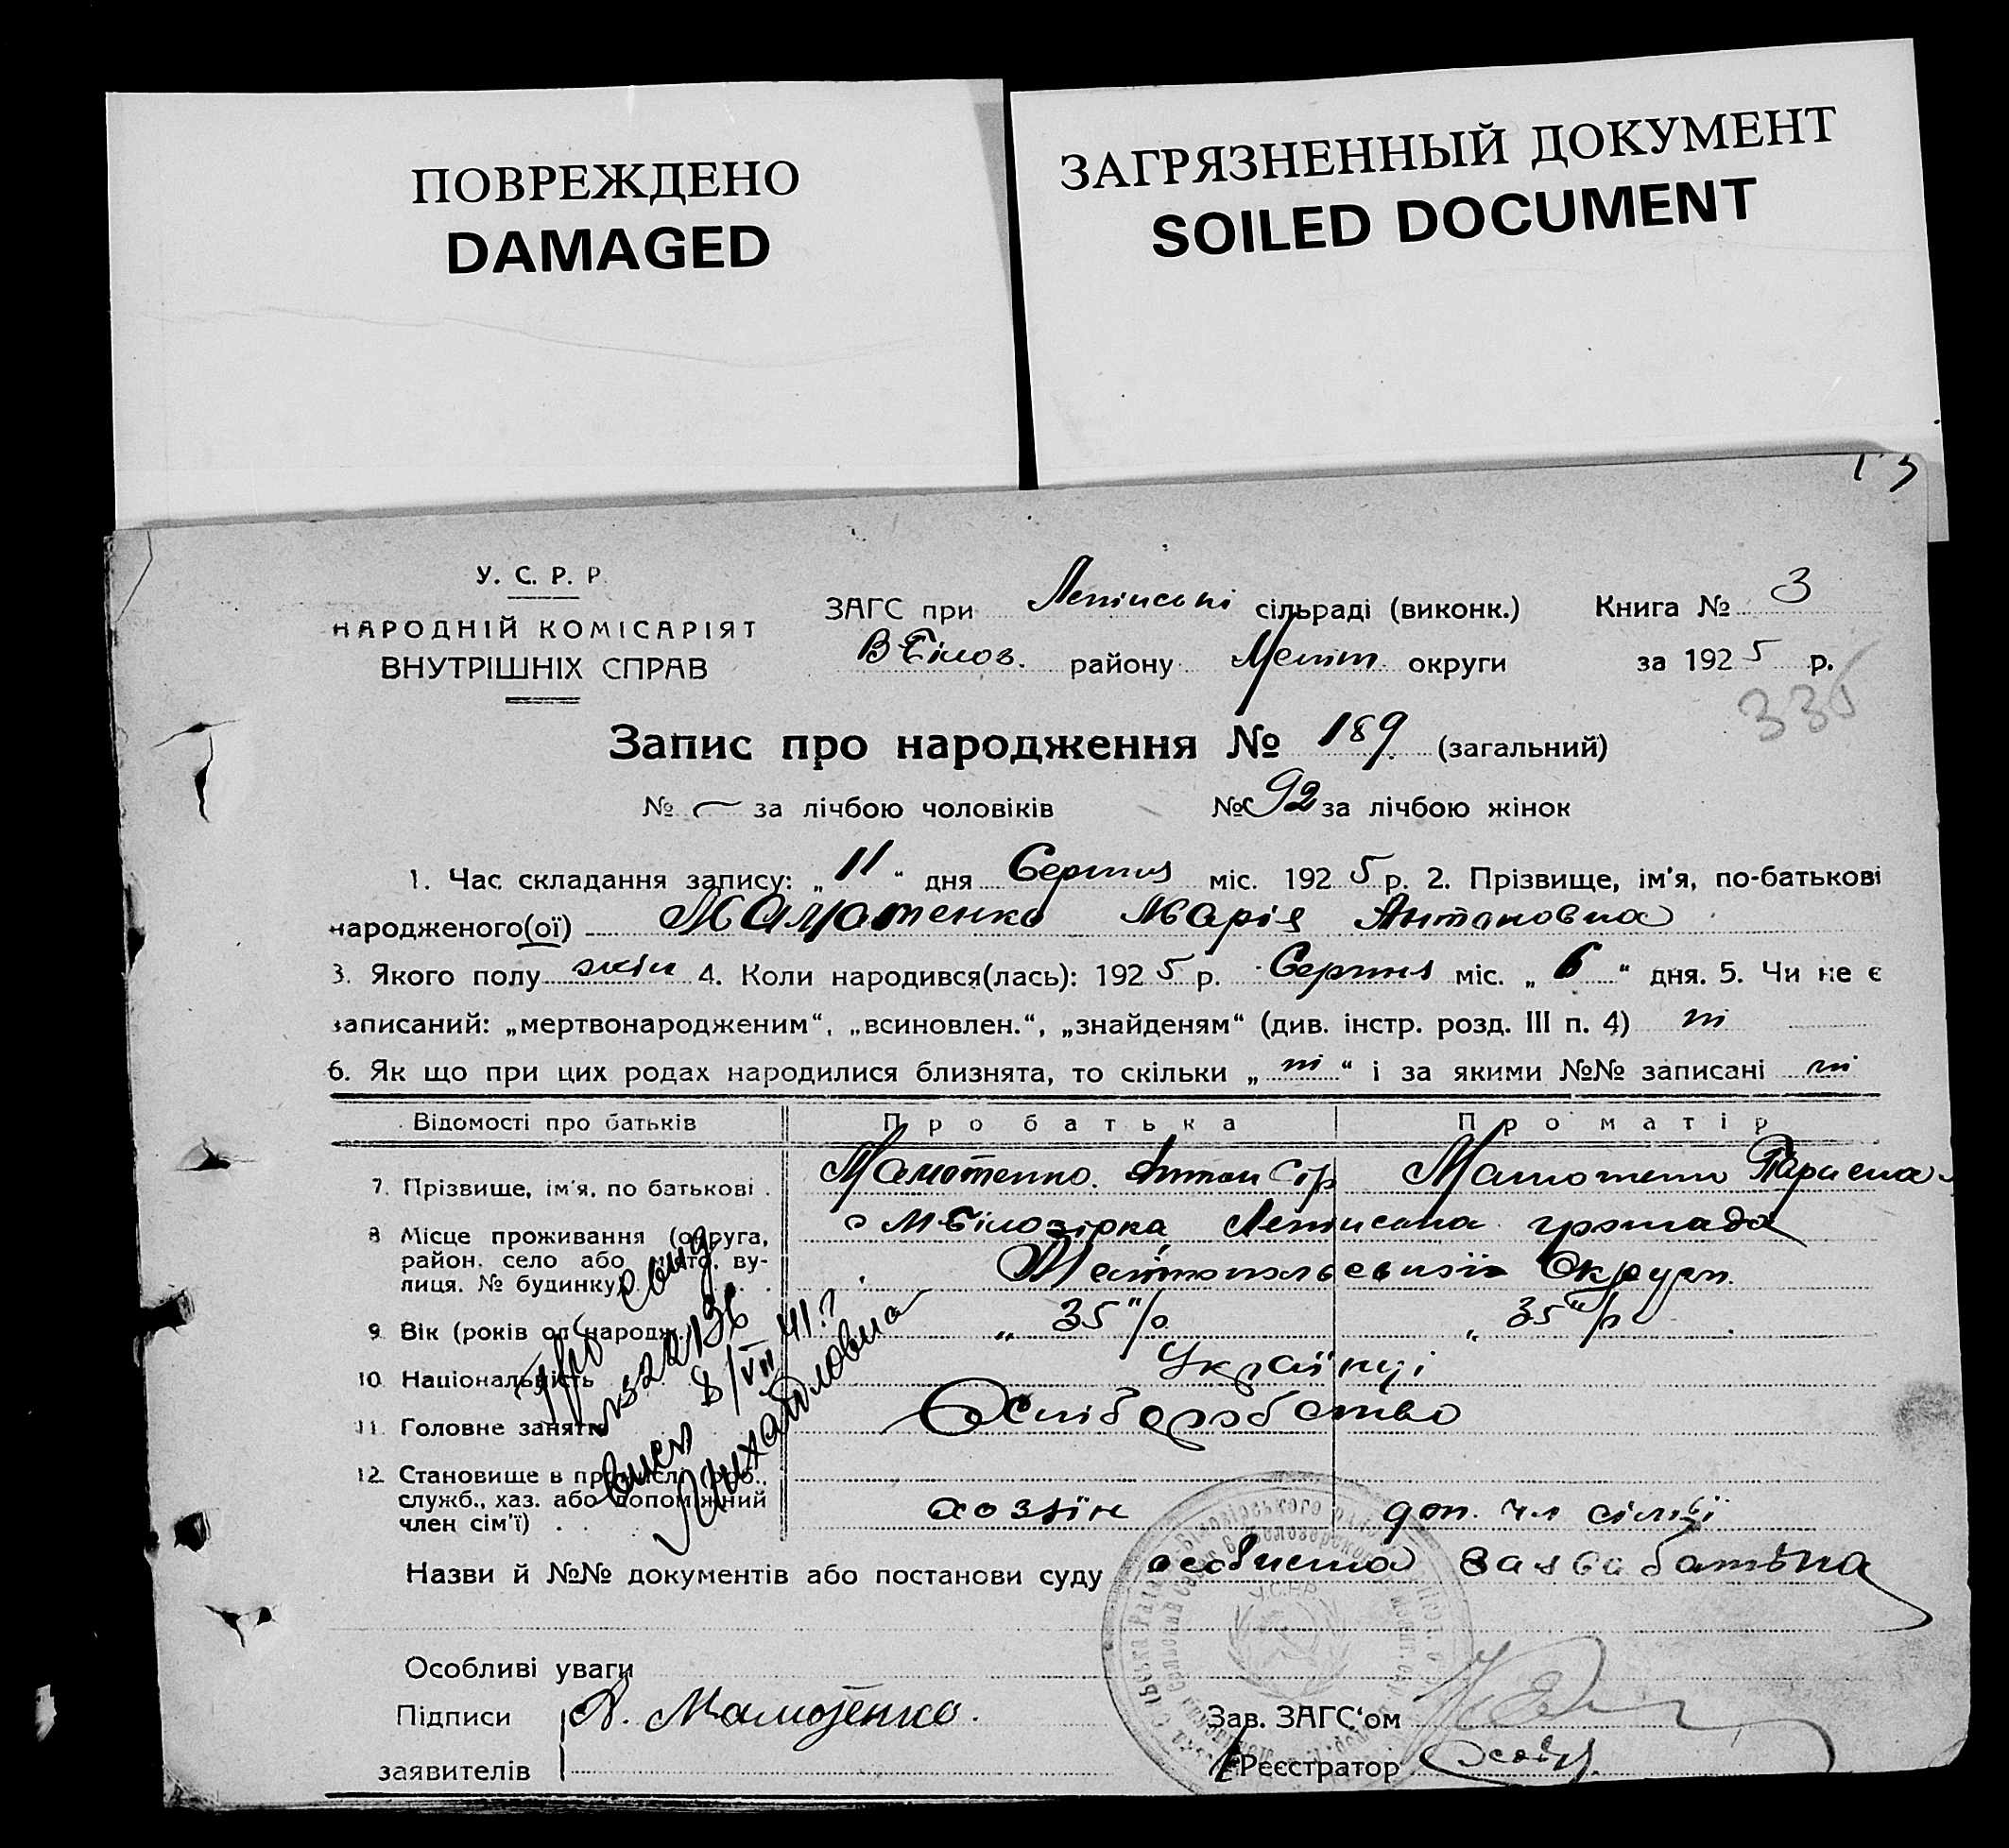 ПОВРЕЖДЕНО
DAMAGED
ЗАГРЯЗНЕННЫЙ ДОКУМЕНТ
SOILED DOCUMENT
У. С. Р. Р.
НАРОДНІЙ КОМІСАРІЯТ
ВНУТРІШНІХ СПРАВ
ЗАГС при сільраді (виконк.) Книга № 3
В Білоз. району Меліт. округи за 1925 р.
335
Запис про народження № 189 (загальний)
№ — за лічбою чоловіків № 92 за лічбою жінок
1. Час складання запису: „11“ дня Серпня міс. 1925 р. 2. Прізвище, ім'я, по-батькові
народженого(ої) Мамотенко Марія Антоновна
3. Якого полу жін 4. Коли народився(лась): 1925 р. Серпня міс. „6“ дня. 5. Чи не є
записаний: „мертвонародженим“, „всиновлен.“, „знайденям“ (див. інстр. розд. III п. 4) ні
6. Як що при цих родах народилися близнята, то скільки „ні“ і за якими №№ записані ні
Відомості про батьків Про батька Про матір
7. Прізвище, ім'я, по батькові . Мамотенко Антон
8 Місце проживання (округа, район. село або місто, вулиця. № будинку) М Білозірка громада
Мелітопольської Округи
9 Вік (років од народж.) „ 35 „ 35
10 Національність Українці
11. Головне заняття
12. Становище в промислі (роб., служб., хаз. або допоміжний член сім'ї) . хозяїн доп. чл сімьї
Назви й №№ документів або постанови суду особиста заява батька
Особливі уваги
Підписи А. Мамотенко.
заявителів
Зав. ЗАГС'ом
Реєстратор
У.С.Р.Р.